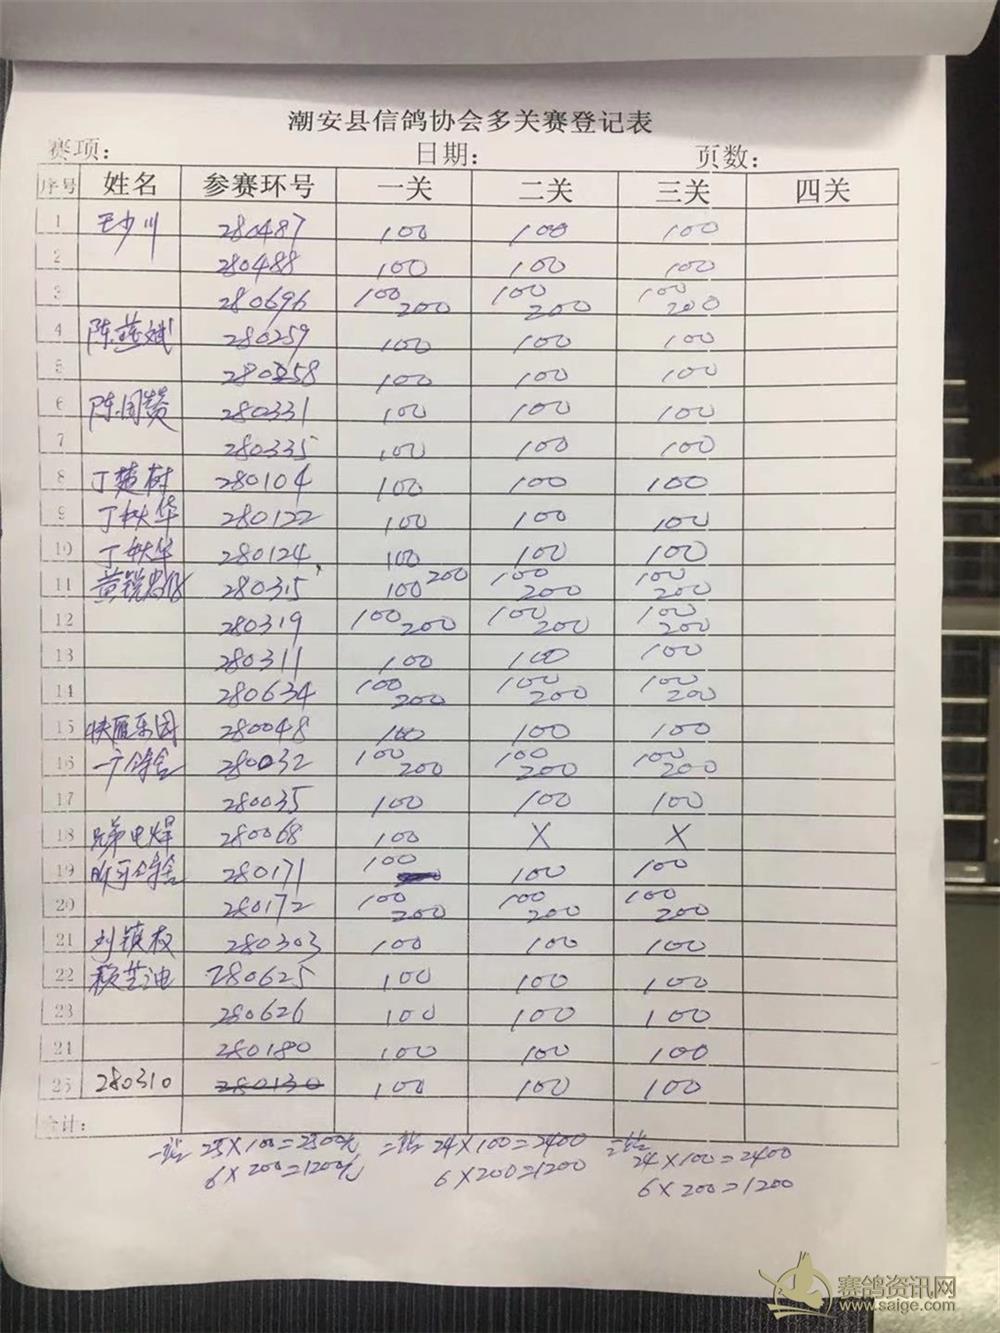 潮安县信鸽协会多关赛登记表
赛项： 日期： 页数：
序号 姓名 参赛环号 一关 二关 三关 四关
1 王少川 280487 100 100 100
2 280488 100 100 100
3 280696 100 200 100 200 100 200
4 陈燕斌 280259 100 100 100
5 280258 100 100 100
6 陈国赞 280331 100 100 100
7 280335 100 100 100
8 丁楚树 280104 100 100 100
9 丁秋华 280122 100 100 100
10 丁秋华 280124 100 100 100
11 黄锐 280315 100 200 100 200 100 200
12 280319 100 200 100 200 100 200
13 280311 100 100 100
14 280634 100 200 100 200 100 200
15 快雁乐园 280048 100 100 100
16 一个鸽舍 280032 100 200 100 200 100 200
17 280035 100 100 100
18 兄弟电焊 280068 100 X X
19 鸽舍 280171 100 100 100
20 280172 100 200 100 200 100 200
21 刘镇权 280303 100 100 100
22 赖芝迪 280625 100 100 100
23 280626 100 100 100
24 280180 100 100 100
25 280310 280130 100 100 100
合计：
一站 25×100=2500元 二站 24×100=2400 三站 24×100=2400
6×200=1200元 6×200=1200 6×200=1200
赛鸽资讯网
www.saige.com